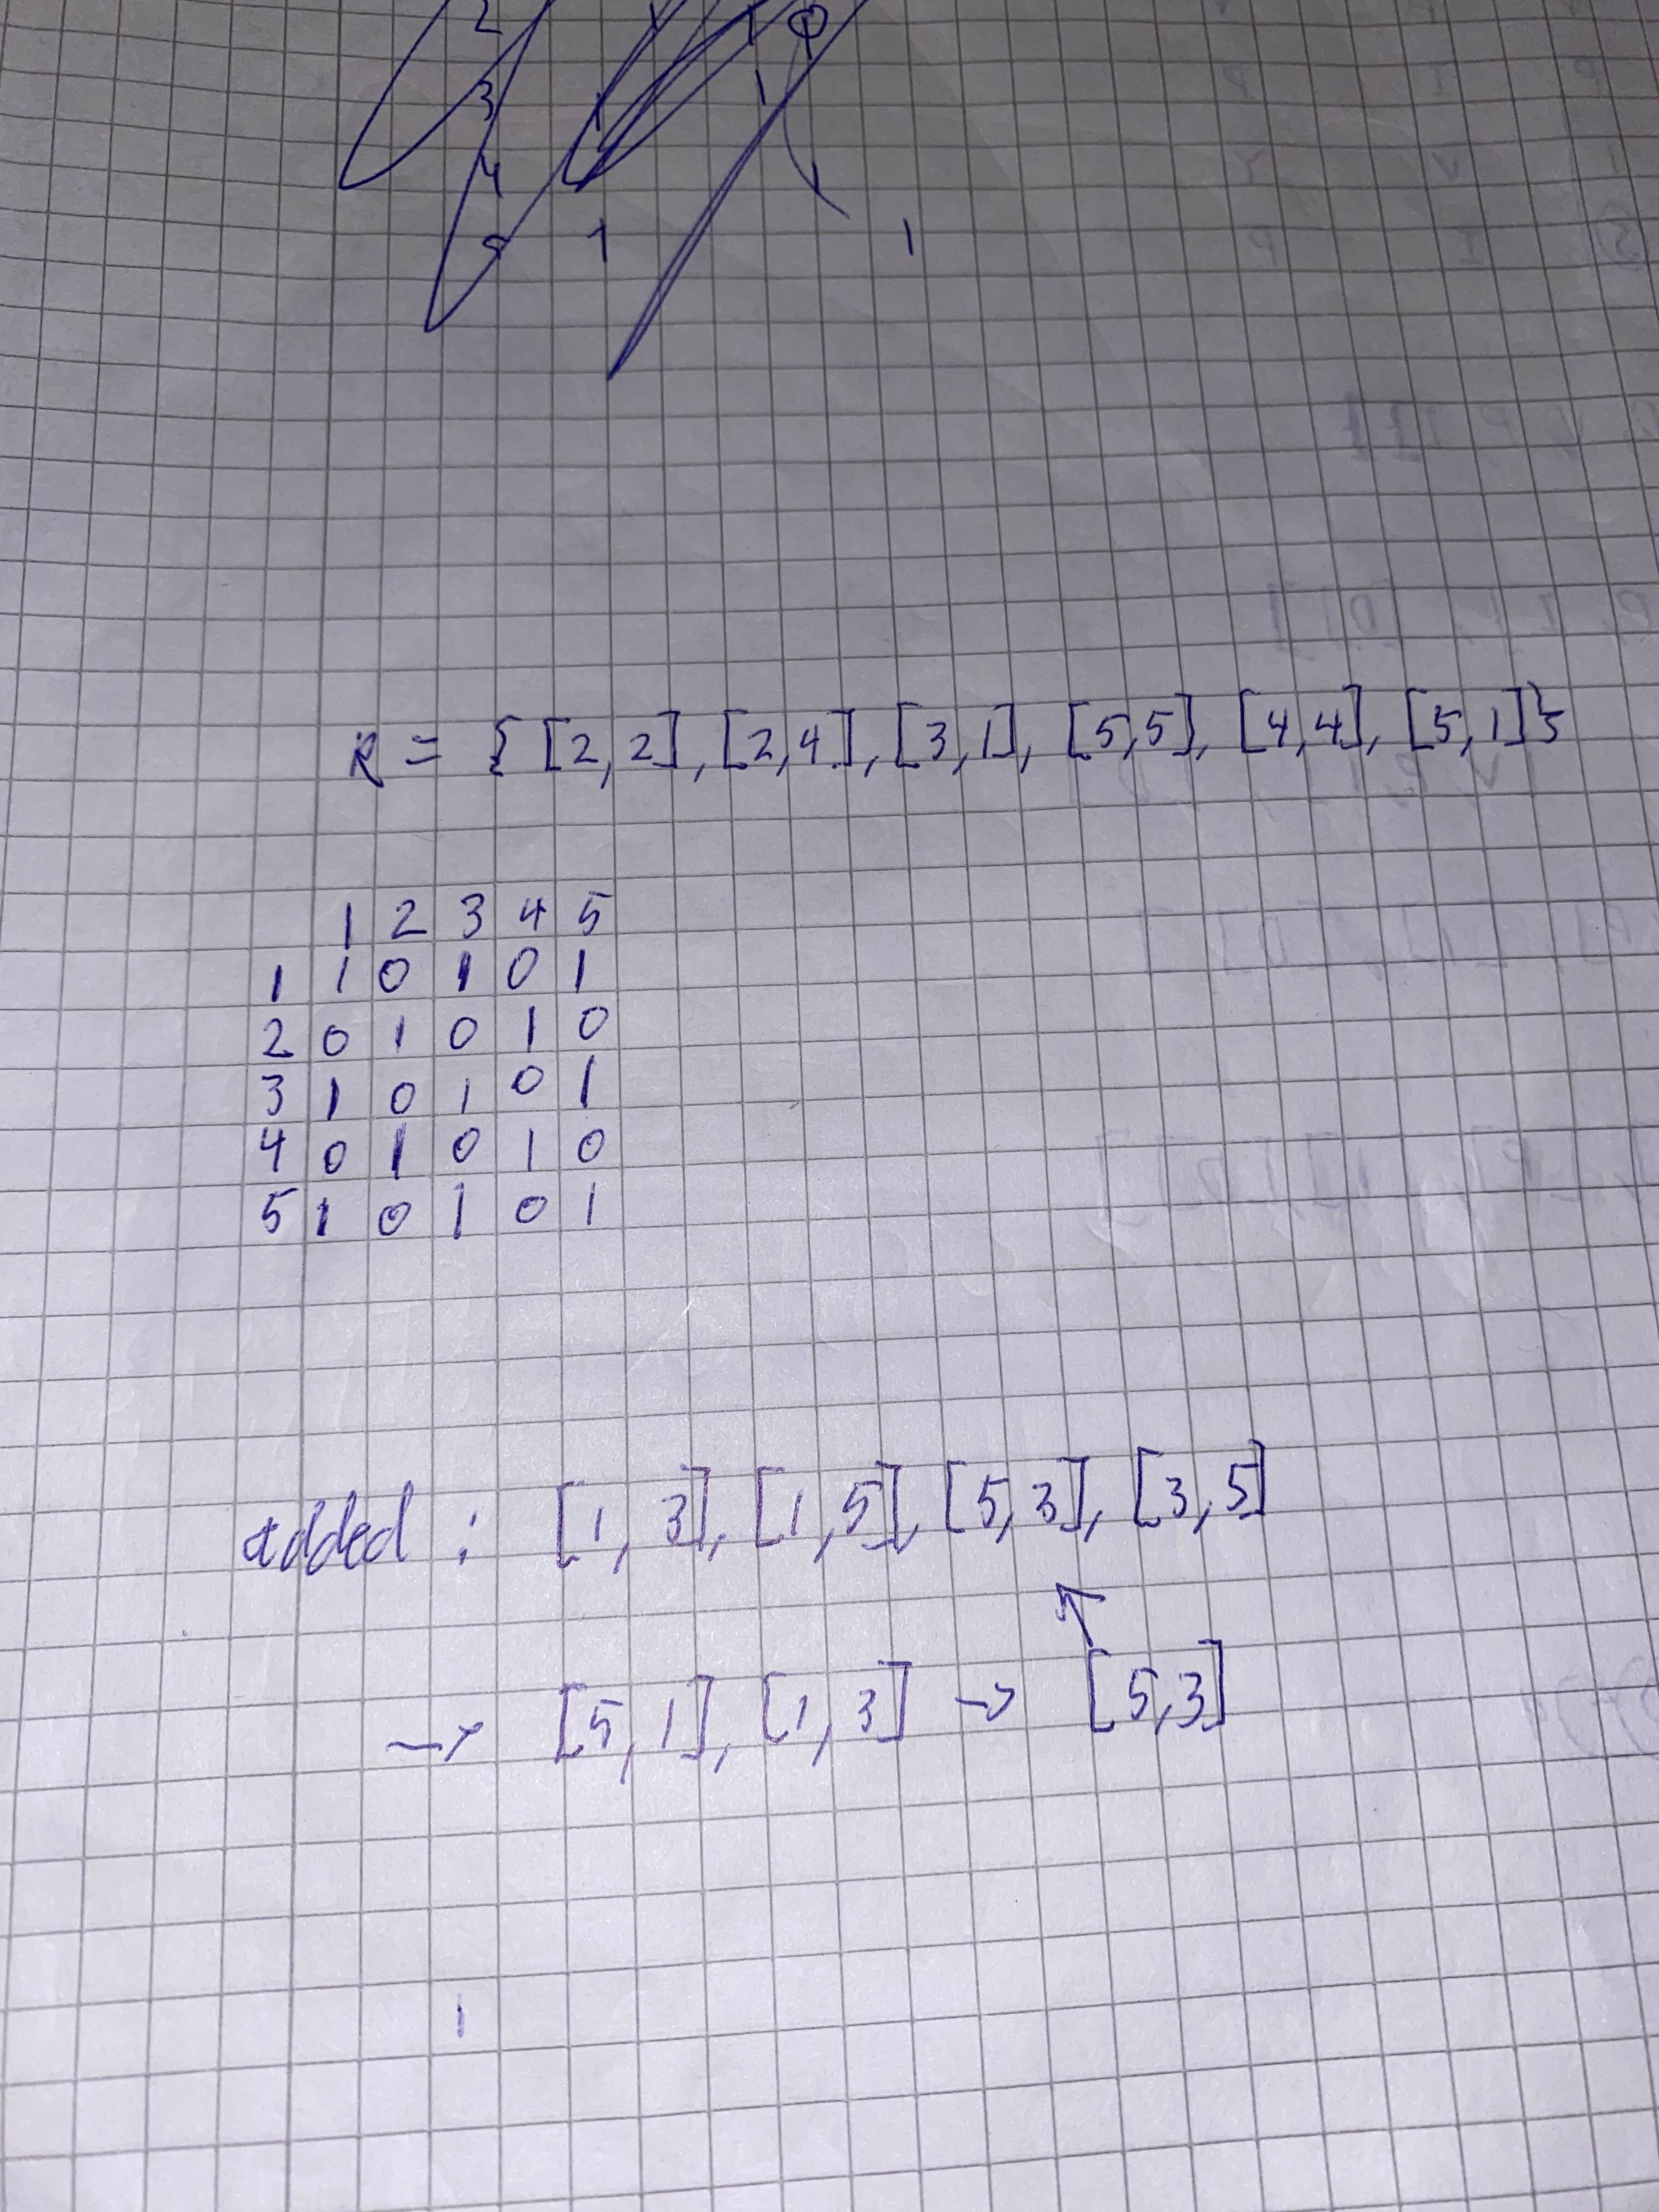 2
3
4
5 1 1
R = { [2,2], [2,4], [3,1], [5,5], [4,4], [5,1] }
1 2 3 4 5
1 1 0 1 0 1
2 0 1 0 1 0
3 1 0 1 0 1
4 0 1 0 1 0
5 1 0 1 0 1
added : [1, 3], [1,5], [5,3], [3,5]
→ [5,1], [1,3] → [5,3]